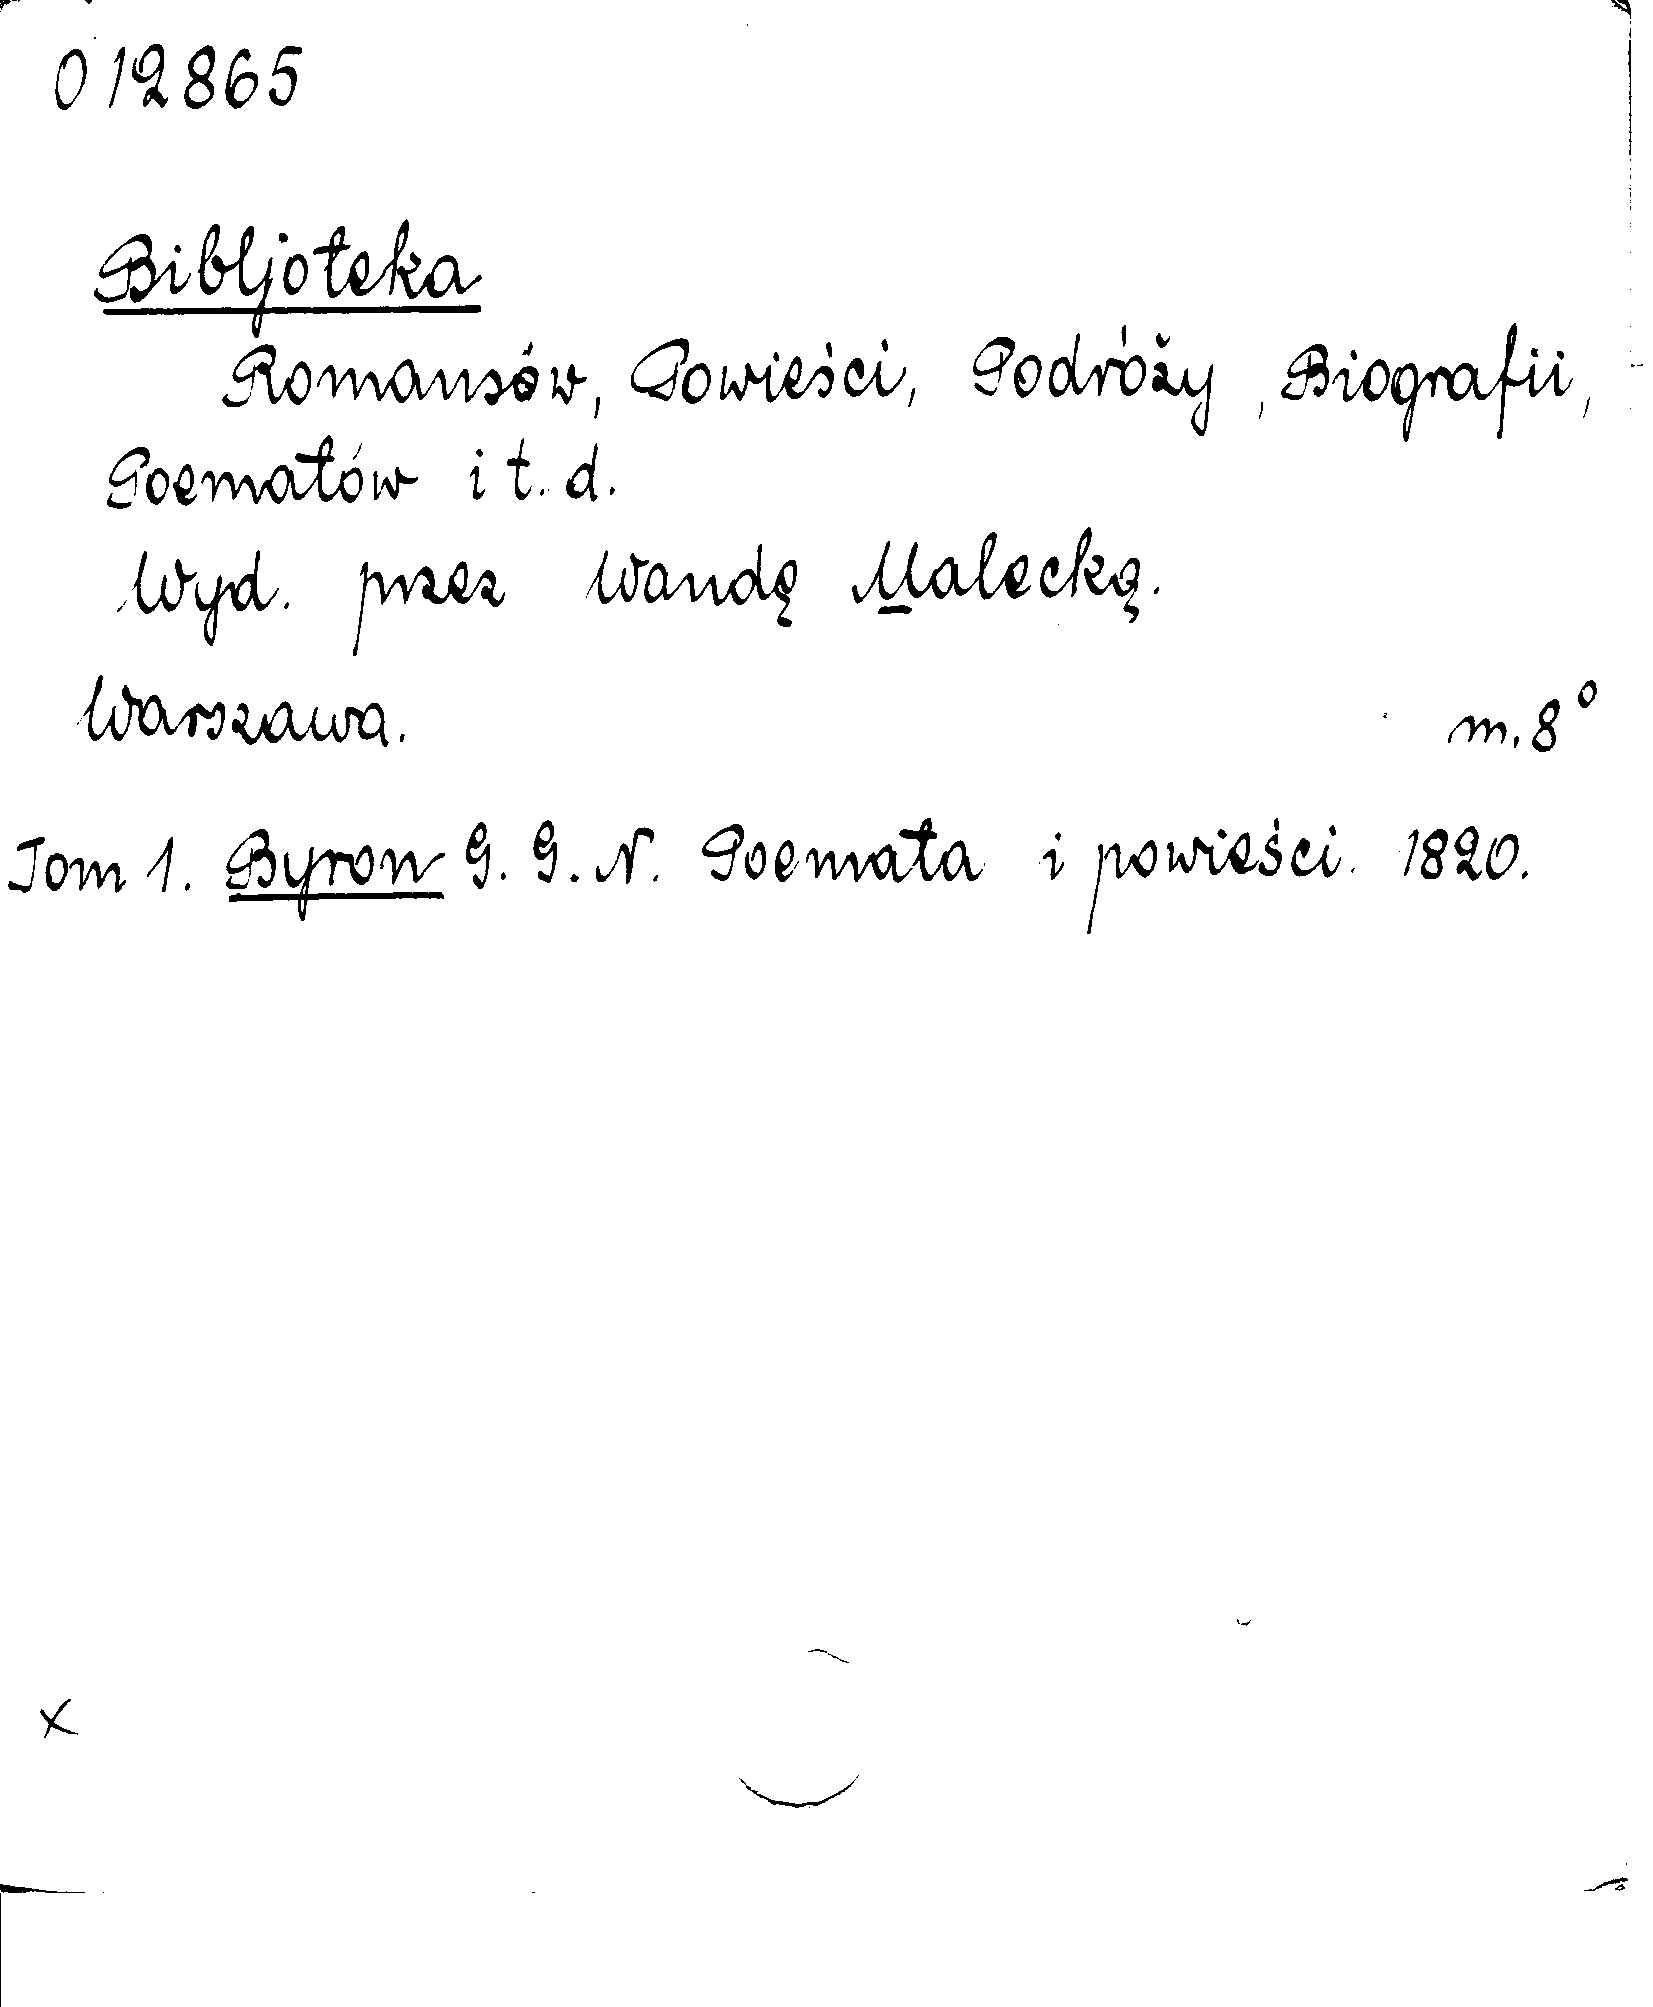 012865
Bibljoteka
Romansów, Powieści, Podróży, Biografii,
Poematów i t. d.
Wyd. przez Wandę Malecką.
Warszawa. m. 8°
Tom 1. Byron G. G. N. Poemata i powieści. 1820.
x